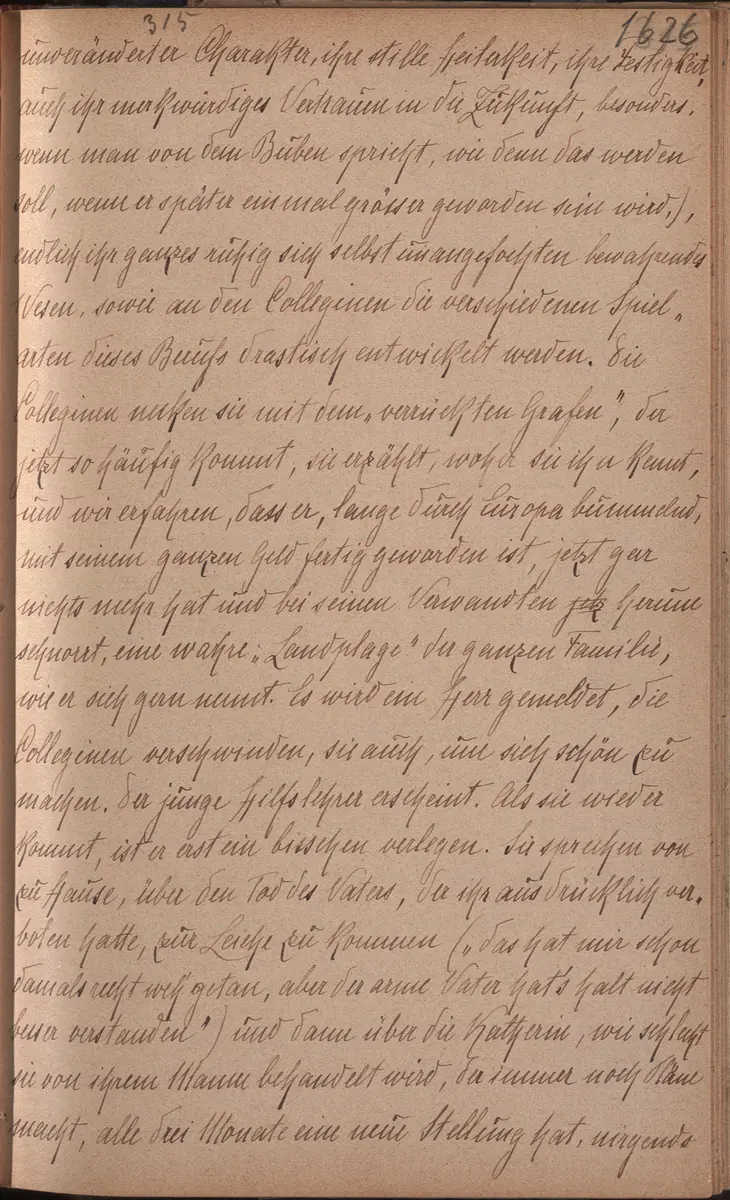 315
1626
unveränderter Charakter, ihre stille Heiterkeit, ihre Festigkeit,
auch ihr merkwürdiges Vertrauen in die Zukunft, besonders,
wenn man von dem Buben spricht, wie denn das werden
soll, wenn er später einmal grösser geworden sein wird,),
endlich ihr ganzes ruhig sich selbst unangefochten bewahrendes
Wesen, sowie an den Colleginen die verschiedenen Spiel„
arten dieses Berufs drastisch entwickelt werden. Die
Colleginen necken sie mit dem „verrückten Grafen", der
jetzt so häufig kommt, sie erzählt, woher sie ihn kennt,
und wir erfahren, dass er, lange durch Europa bummelnd,
mit seinem ganzen Geld fertig geworden ist, jetzt gar
nichts mehr hat und bei seinen Verwandten jetz herum
schnorrt, eine wahre „Landplage" der ganzen Familie,
wie er sich gern nennt. Es wird ein Herr gemeldet, die
Colleginen verschwinden, sie auch, um sich schön zu
machen. Der junge Hilfslehrer erscheint. Als sie wieder
kommt, ist er erst ein bisschen verlegen. Sie sprechen von
zu Hause, über den Tod des Vaters, der ihr ausdrücklich ver„
boten hatte, zur Leiche zu kommen („das hat mir schon
damals recht weh getan, aber der arme Vater hat's halt nicht
besser verstanden") und dann über die Katherin, wie schlecht
sie von ihrem Manne behandelt wird, der immer noch Pläne
macht, alle drei Monate eine neue Stellung hat, nirgends